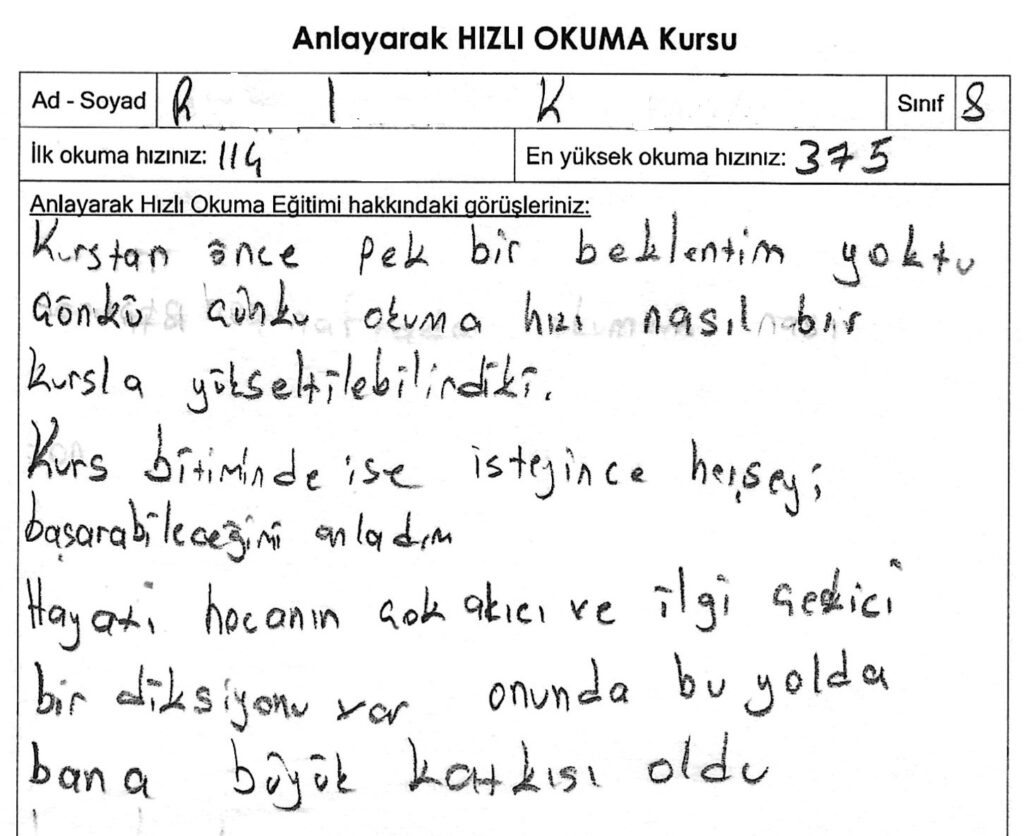 Anlayarak HIZLI OKUMA Kursu
Ad - Soyad R I K Sınıf 8
İlk okuma hızınız: 114 En yüksek okuma hızınız: 375
Anlayarak Hızlı Okuma Eğitimi hakkındaki görüşleriniz:
Kurstan önce pek bir beklentim yoktu
Çönkü Çünkü okuma hızı nasıl bir
kursla yükseltilebilirdiki.
Kurs bitiminde ise isteyince herşeyi
başarabileceğimi anladım
Hayati hocanın çok akıcı ve ilgi çekici
bir diksiyonu var onunda bu yolda
bana büyük katkısı oldu